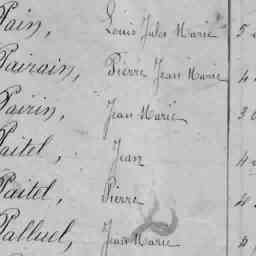 Pain, Louis Jules Marie 5
Pairain, Pierre Jean Marie 4
Pairin, Jean Marie 3
Paitel, Jean 4
Paitel, Pierre
Palluel, Jean Marie